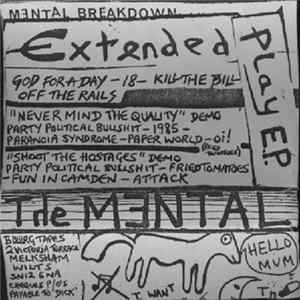 MƎNTAL BREAKDOWN
Extended
Play E.P
GOD FOR A DAY - 18 - KILL THE BILL
OFF THE RAILS
"NEVER MIND THE QUALITY" DEMO
PARTY POLITICAL BULLSHIT - 1985 -
PARANOIA SYNDROME - PAPER WORLD - oi!
"SHOOT THE HOSTAGES" DEMO
PARTY POLITICAL BULLSHIT - FRIED TOMATOES
- FUN IN CAMDEN - ATTACK
The MƎNTAL
TAPES
2 VICTORIA TERRACE
MELKSHAM
WILTS
SN12 6NA
CHEQUES P/O'S
PAYABLE TO 'DICK'
HELLO
MUM
I WANT